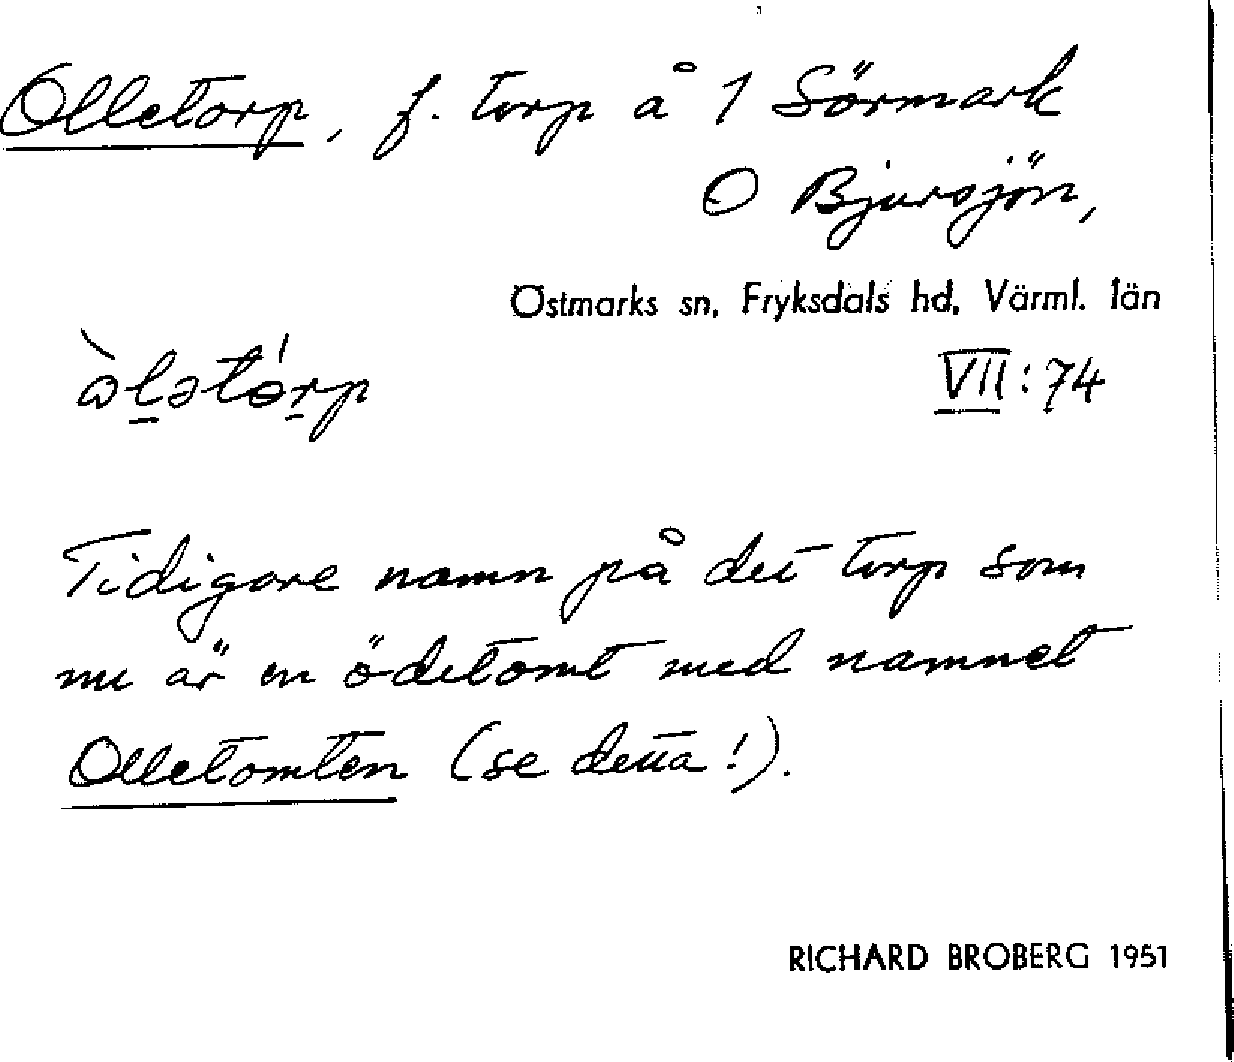 Olletorp, f. torp å 1 Sörmark
O Bjursjön,
Östmarks sn, Fryksdals hd, Värml. län
VII:74
Tidigare namn på det torp som
nu är en ödetomt med namnet
Olletomten (se detta!).
RICHARD BROBERG 1951